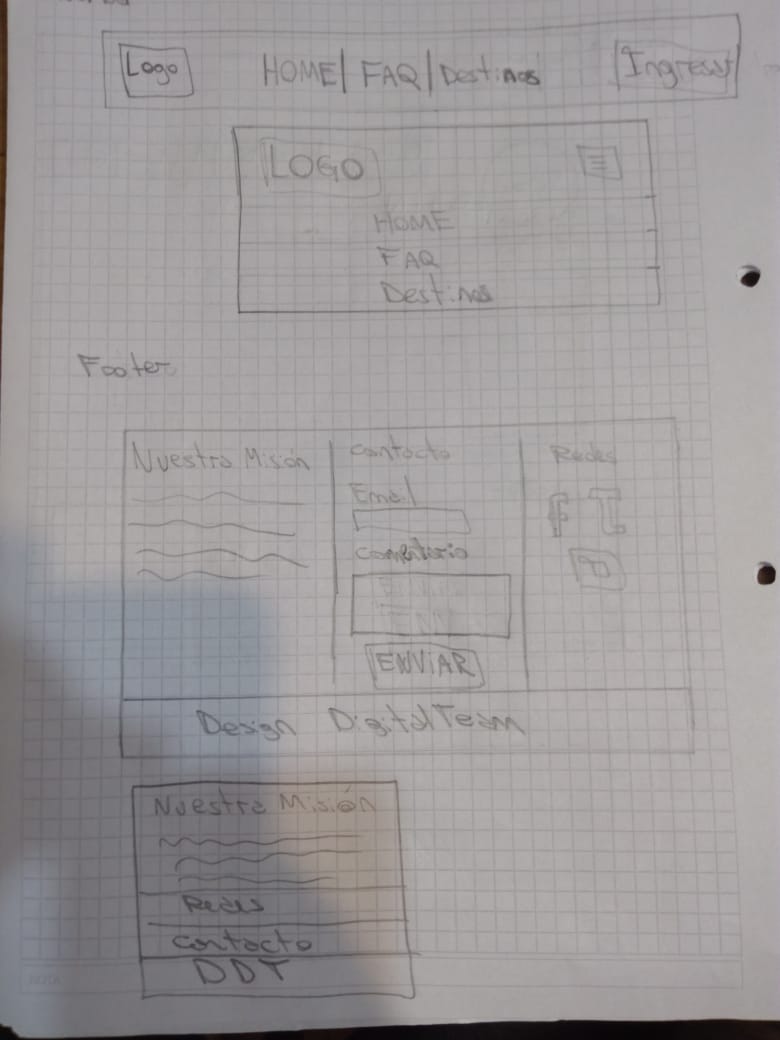 Logo HOME| FAQ|Destinos Ingresar
LOGO
HOME
FAQ
Destinos
Footer
Nuestra Misión Contacto Redes
Email
Comentario
ENVIAR
Design Digital Team
Nuestra Misión
Redes
Contacto
DDT